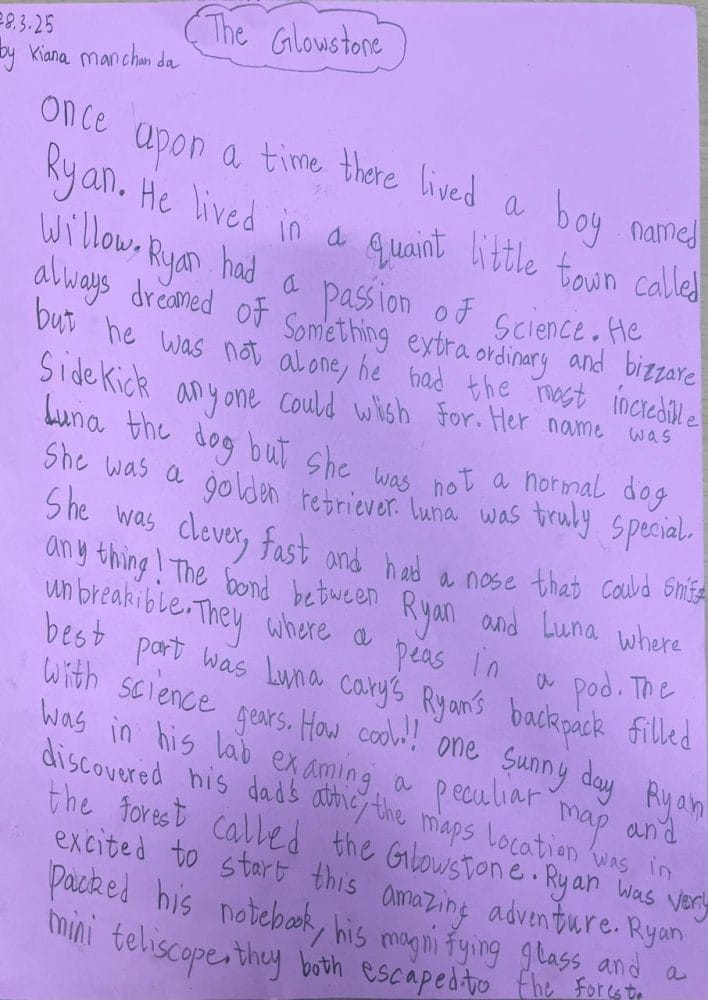 28.3.25
The Glowstone
by Kiana manchanda
Once upon a time there lived a boy named
Ryan. He lived in a quaint little town called
Willow. Ryan had a passion of Science. He
always dreamed of Something extraordinary and bizzare
but he was not alone, he had the most incredible
Sidekick anyone could wish for. Her name was
Luna the dog but she was not a normal dog
She was a golden retriever. Luna was truly special.
She was clever, fast and had a nose that could sniff
anything! The bond between Ryan and Luna where
unbreakible. They where a peas in a pod. The
best part was Luna cary's Ryan's backpack filled
with science gears. How cool!! One sunny day Ryan
was in his lab examing a peculiar map and
discovered his dad's attic, the maps location was in
the forest called the Glowstone. Ryan was very
excited to start this amazing adventure. Ryan
packed his notebook, his magnifying glass and a
mini teliscope. they both escaped.to the forest.